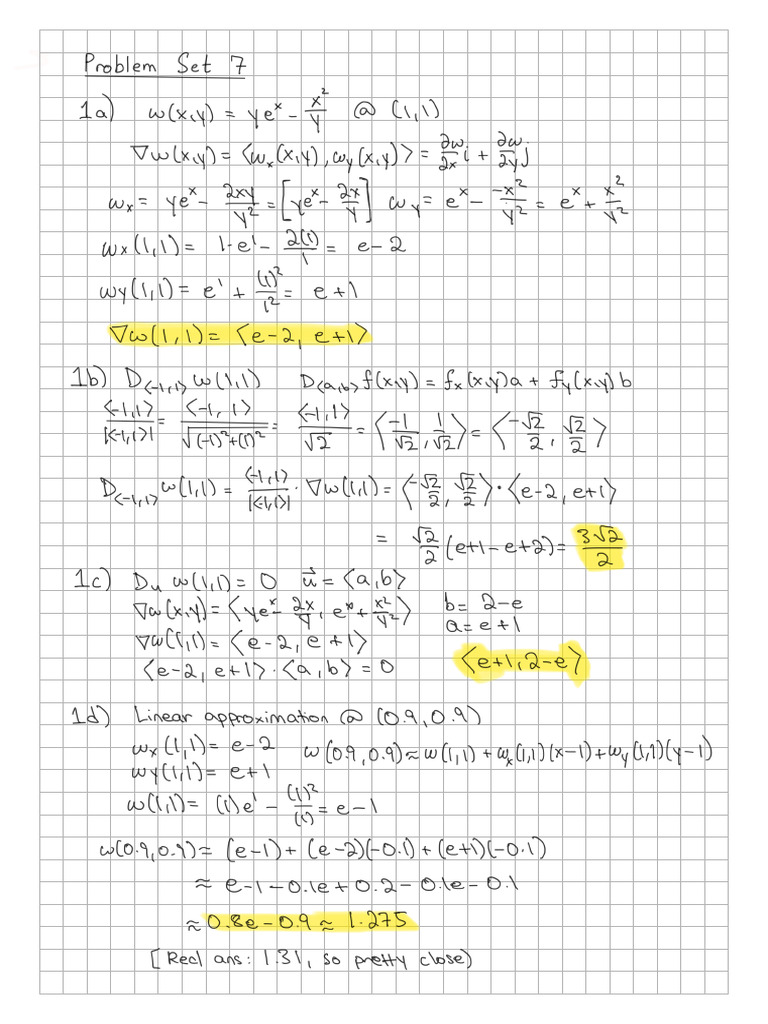 Problem Set 7
1a) w(x,y) = ye^x - x^2/y @ (1,1)
∇w(x,y) = <w_x(x,y), w_y(x,y)> = ∂w/∂x i + ∂w/∂y j
w_x = ye^x - 2xy/y^2 = [ye^x - 2x/y] w_y = e^x - -x^2/y^2 = e^x + x^2/y^2
w_x(1,1) = 1·e^1 - 2(1)/1 = e-2
w_y(1,1) = e^1 + (1)^2/1^2 = e+1
∇w(1,1) = <e-2, e+1>
1b) D_<-1,1> w(1,1) D_<a,b> f(x,y) = f_x(x,y)a + f_y(x,y)b
<-1,1>/|<-1,1>| = <-1,1>/√((-1)^2+(1)^2) = <-1,1>/√2 = <-1/√2, 1/√2> = <-√2/2, √2/2>
D_<-1,1> w(1,1) = <-1,1>/|<-1,1>| · ∇w(1,1) = <-√2/2, √2/2> · <e-2, e+1>
= √2/2 (e+1-e+2) = 3√2/2
1c) D_u w(1,1) = 0 u⃗ = <a,b>
∇w(x,y) = <ye^x - 2x/y, e^x + x^2/y^2> b = 2-e
∇w(1,1) = <e-2, e+1> a = e+1
<e-2, e+1> · <a,b> = 0 <e+1, 2-e>
1d) Linear approximation @ (0.9,0.9)
w_x(1,1) = e-2 w(0.9,0.9) ≈ w(1,1) + w_x(1,1)(x-1) + w_y(1,1)(y-1)
w_y(1,1) = e+1
w(1,1) = (1)e^1 - (1)^2/(1) = e-1
w(0.9,0.9) ≈ (e-1) + (e-2)(-0.1) + (e+1)(-0.1)
≈ e-1-0.1e+0.2-0.1e-0.1
≈ 0.8e-0.9 ≈ 1.275
[Real ans: 1.31, so pretty close)